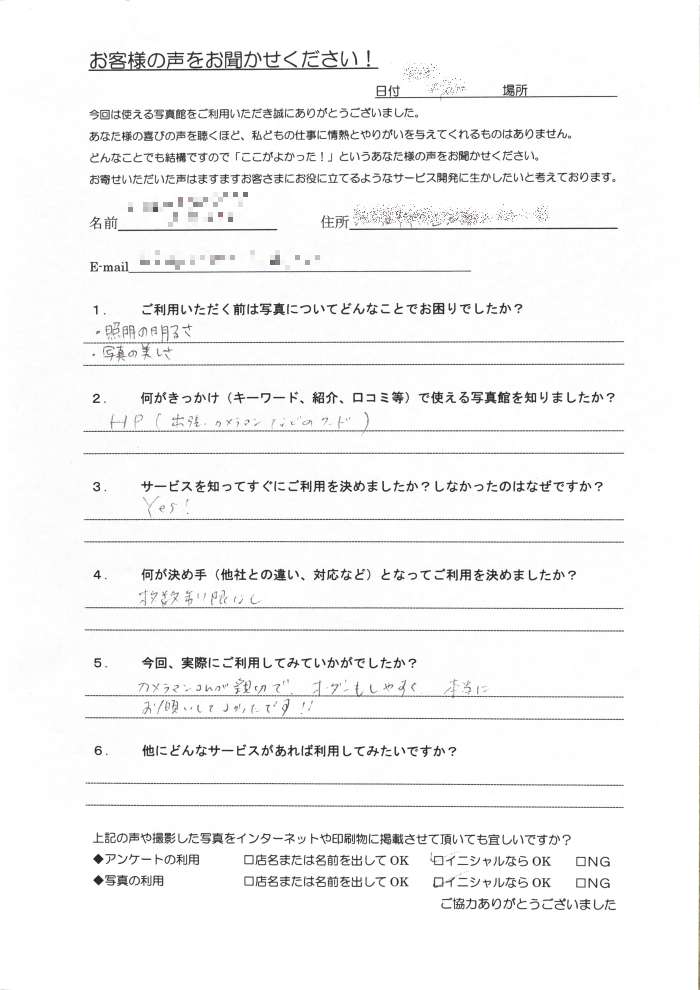 お客様の声をお聞かせください！
日付 場所
今回は使える写真館をご利用いただき誠にありがとうございました。
あなた様の喜びの声を聴くほど、私どもの仕事に情熱とやりがいを与えてくれるものはありません。
どんなことでも結構ですので「ここがよかった！」というあなた様の声をお聞かせください。
お寄せいただいた声はますますお客さまにお役に立てるようなサービス開発に生かしたいと考えております。
名前 住所
E-mail
１． ご利用いただく前は写真についてどんなことでお困りでしたか？
・照明の明るさ
・写真の美しさ
２． 何がきっかけ（キーワード、紹介、口コミ等）で使える写真館を知りましたか？
HP（出張、カメラマンなどのワード）
３． サービスを知ってすぐにご利用を決めましたか？しなかったのはなぜですか？
Yes！
４． 何が決め手（他社との違い、対応など）となってご利用を決めましたか？
枚数制限なし
５． 今回、実際にご利用してみていかがでしたか？
カメラマンさんが親切で、オーダーもしやすく 本当に
お願いしてよかったです!!
６． 他にどんなサービスがあれば利用してみたいですか？
上記の声や撮影した写真をインターネットや印刷物に掲載させて頂いても宜しいですか？
◆アンケートの利用 □店名または名前を出して OK □イニシャルなら OK □NG
◆写真の利用 □店名または名前を出して OK □イニシャルなら OK □NG
ご協力ありがとうございました